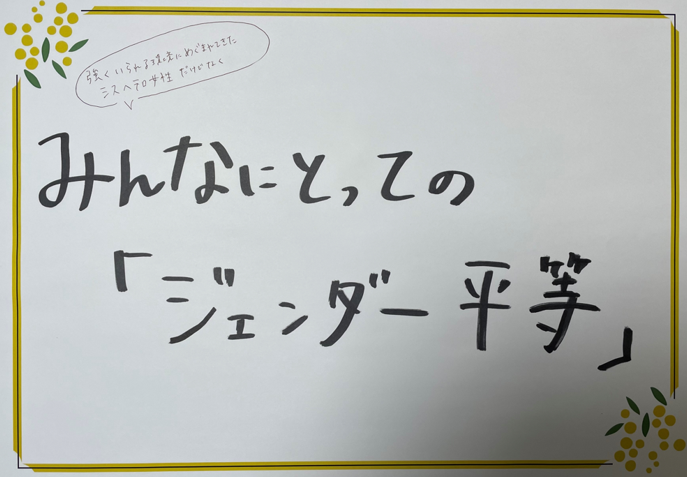 強くいられる環境にめぐまれてきた
シスヘテロ女性 だけでなく
みんなにとっての
「ジェンダー平等」